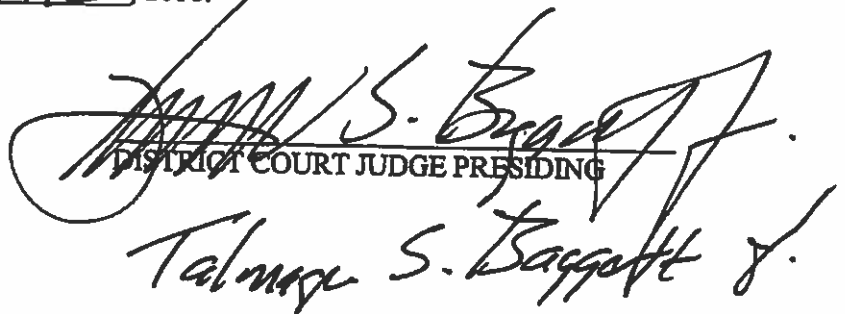 S. Baggett Jr.
DISTRICT COURT JUDGE PRESIDING
Talmage S. Baggett Jr.